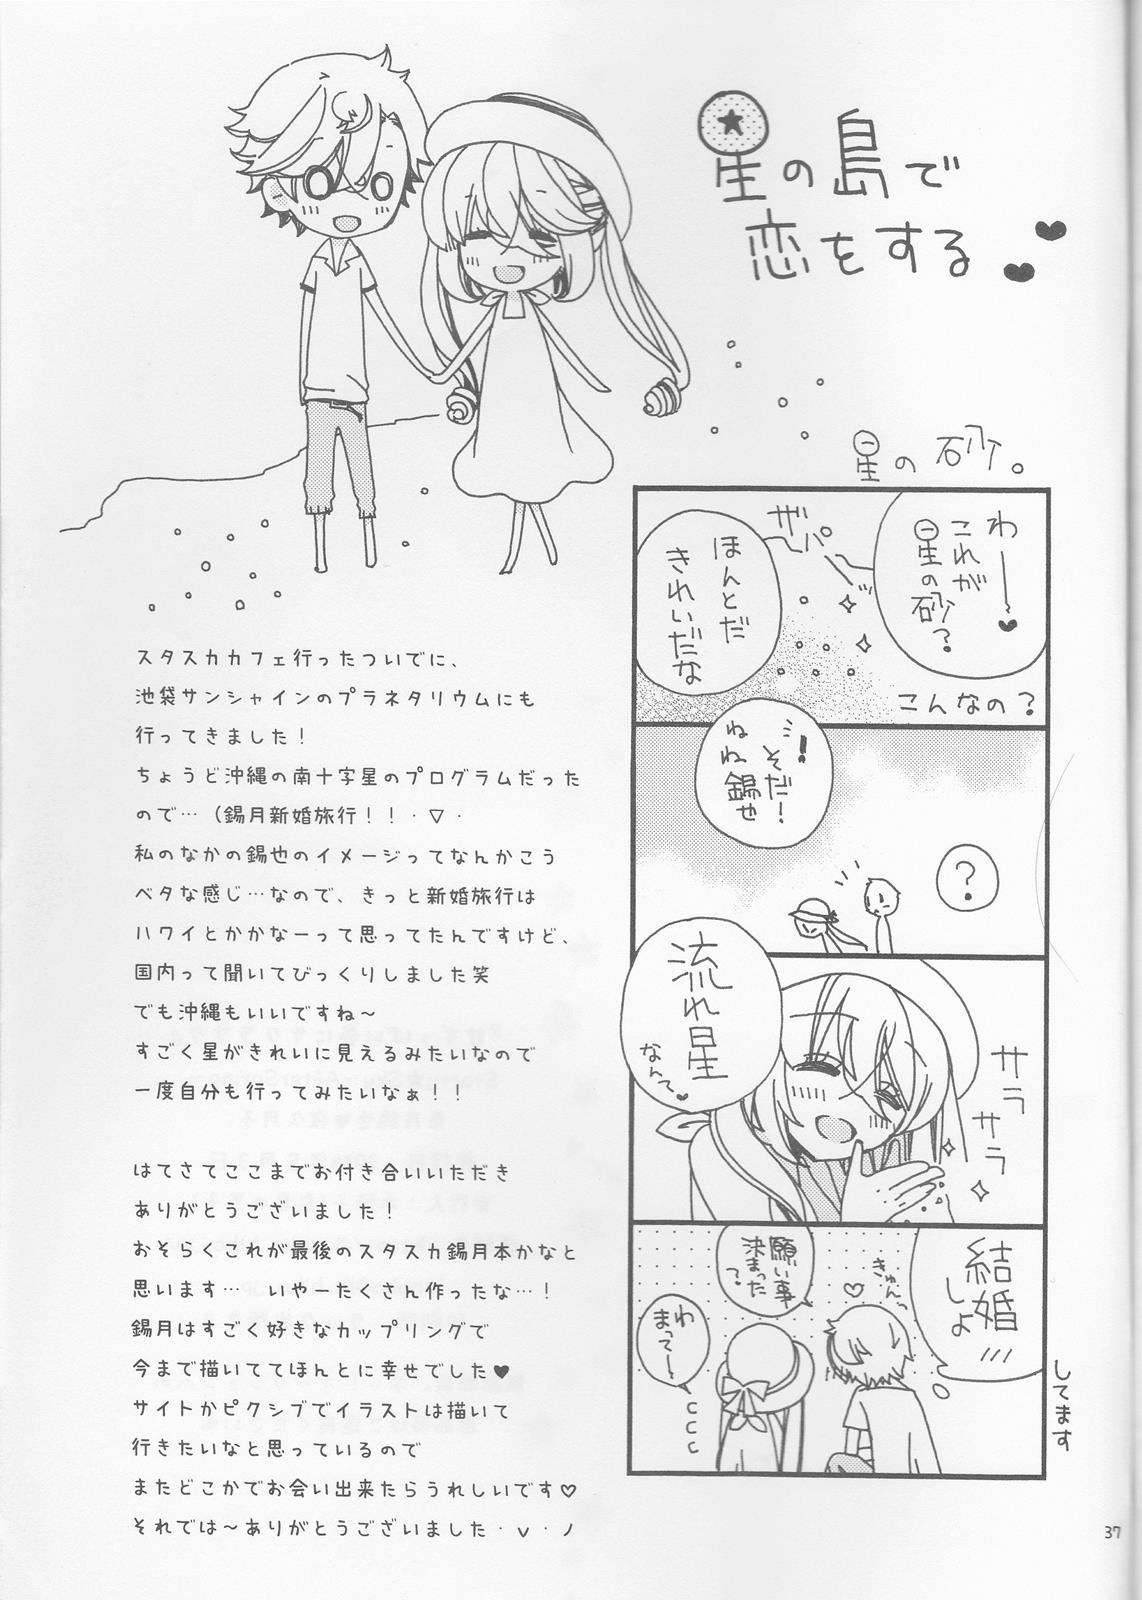 星の島で
恋をする
星の砂。
わーー♥
これが
星の砂？
ザパ
ほんとだ
きれいだな
こんなの？
！そだ！
ねね錫也
？
流れ星
なんて♥
サラ
サラ
結婚
しよ
きゅん
願い事
決まった
？
わ
まってー
してます
スタスカカフェ行ったついでに、
池袋サンシャインのプラネタリウムにも
行ってきました！
ちょうど沖縄の南十字星のプログラムだった
ので…（錫月新婚旅行！！・▽・
私のなかの錫也のイメージってなんかこう
ベタな感じ…なので、きっと新婚旅行は
ハワイとかかなーって思ってたんですけど、
国内って聞いてびっくりしました笑
でも沖縄もいいですね～
すごく星がきれいに見えるみたいなので
一度自分も行ってみたいなぁ！！
はてさてここまでお付き合いいただき
ありがとうございました！
おそらくこれが最後のスタスカ錫月本かなと
思います… いやーたくさん作ったな…！
錫月はすごく好きなカップリングで
今まで描いててほんとに幸せでした♥
サイトかピクシブでイラストは描いて
行きたいなと思っているので
またどこかでお会い出来たらうれしいです♡
それでは～ありがとうございました・ｖ・ノ
37